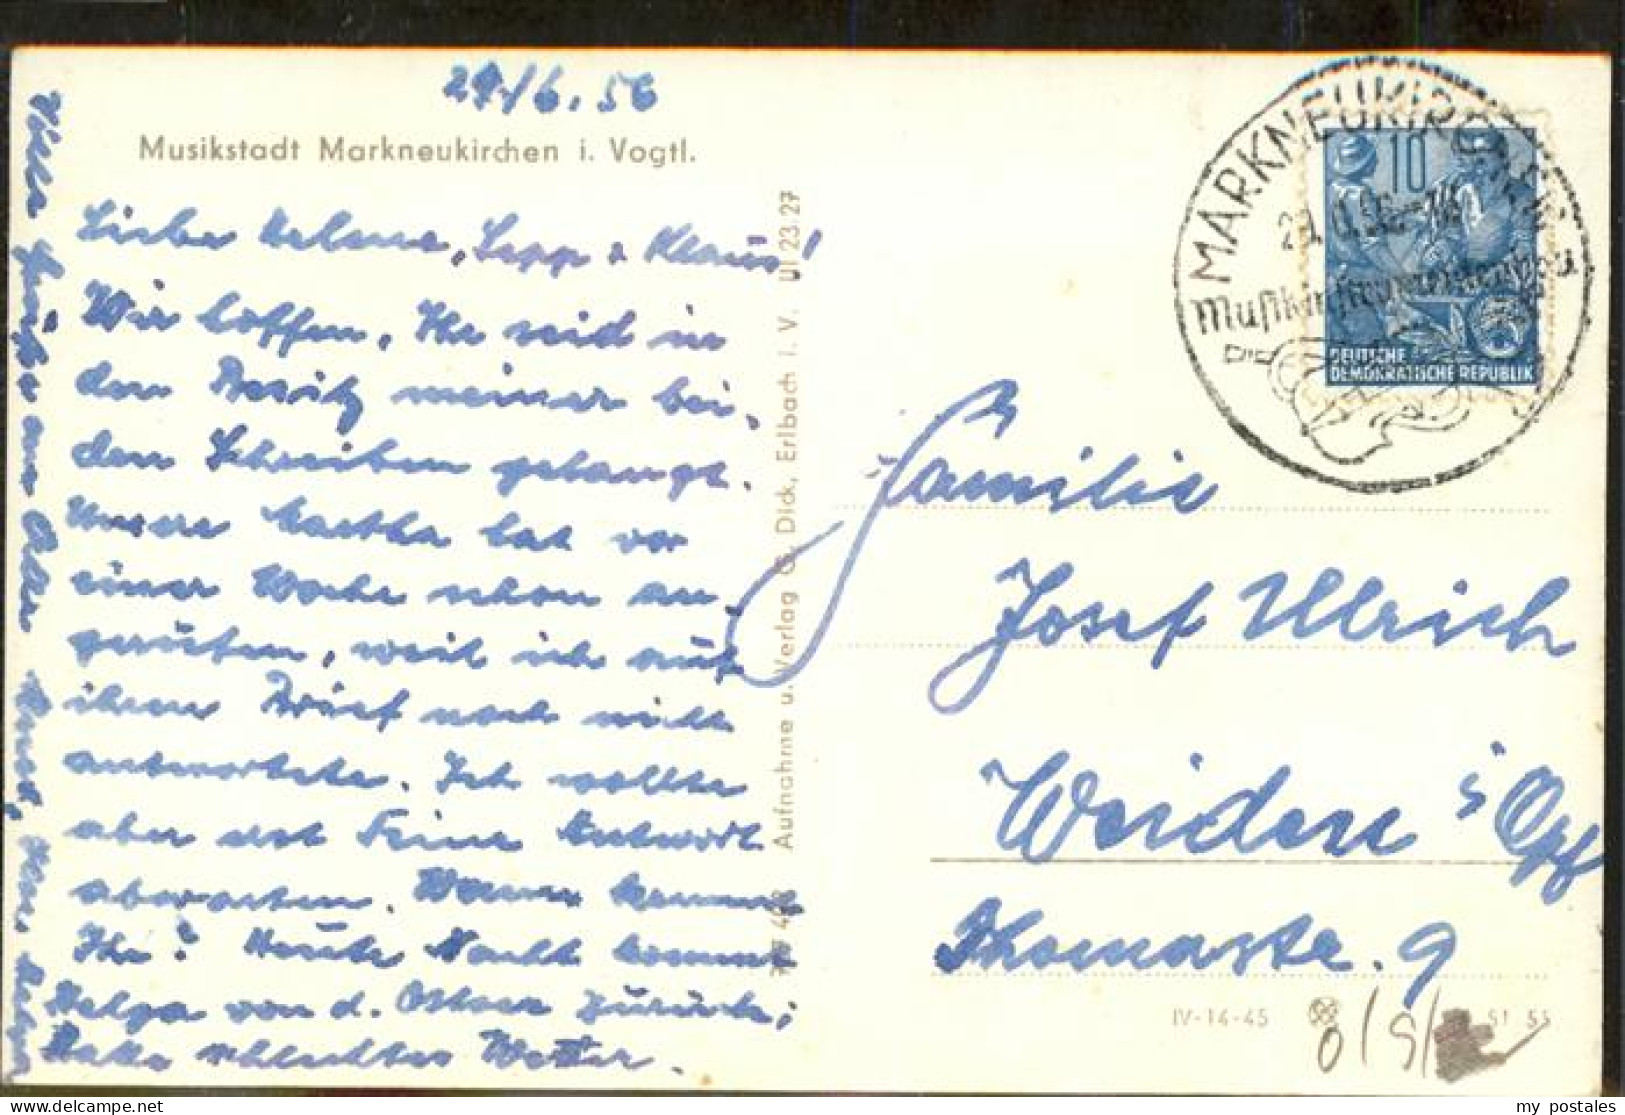 29/6. 56
Musikstadt Markneukirchen i. Vogtl.
Liebe Helene, Sepp & Klaus!
Wir hoffen, Ihr seid in
den Besitz meiner bei-
den Schreiben gelangt.
Unsere Martha hat vor
einer Woche schon an-
gerufen, weil ich auf
ihren Brief noch nicht
antwortete. Ich wollte
aber erst Deine Antwort
abwarten. Wann kommt
Ihr? Heute Nacht kommt
Helga von d. Ostsee zurück;
Hatte schlechtes Wetter.
Viele Grüße an Alle
Aufnahme u. Verlag G. Dick, Erlbach i. V. UI 23 27
MARKNEUKIRCHEN
Musikinstrumentenbau
10
DEUTSCHE
DEMOKRATISCHE REPUBLIK
Familie
Josef Ullrich
Weiden i Opf
Thomastr. 9
IV-14-45
my postales